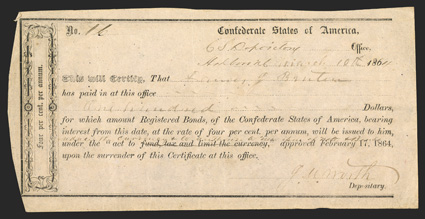 Four per cent. per annum.
No. 16
Confederate States of America,
C S Depository Office,
March 18th 1864
This will Certify, That
has paid in at this office
One hundred Dollars,
for which amount Registered Bonds, of the Confederate States of America, bearing
interest from this date, at the rate of four per cent. per annum, will be issued to him,
under the "act to fund, tax and limit the currency," approved February 17, 1864,
upon the surrender of this Certificate at this office.
Depositary.